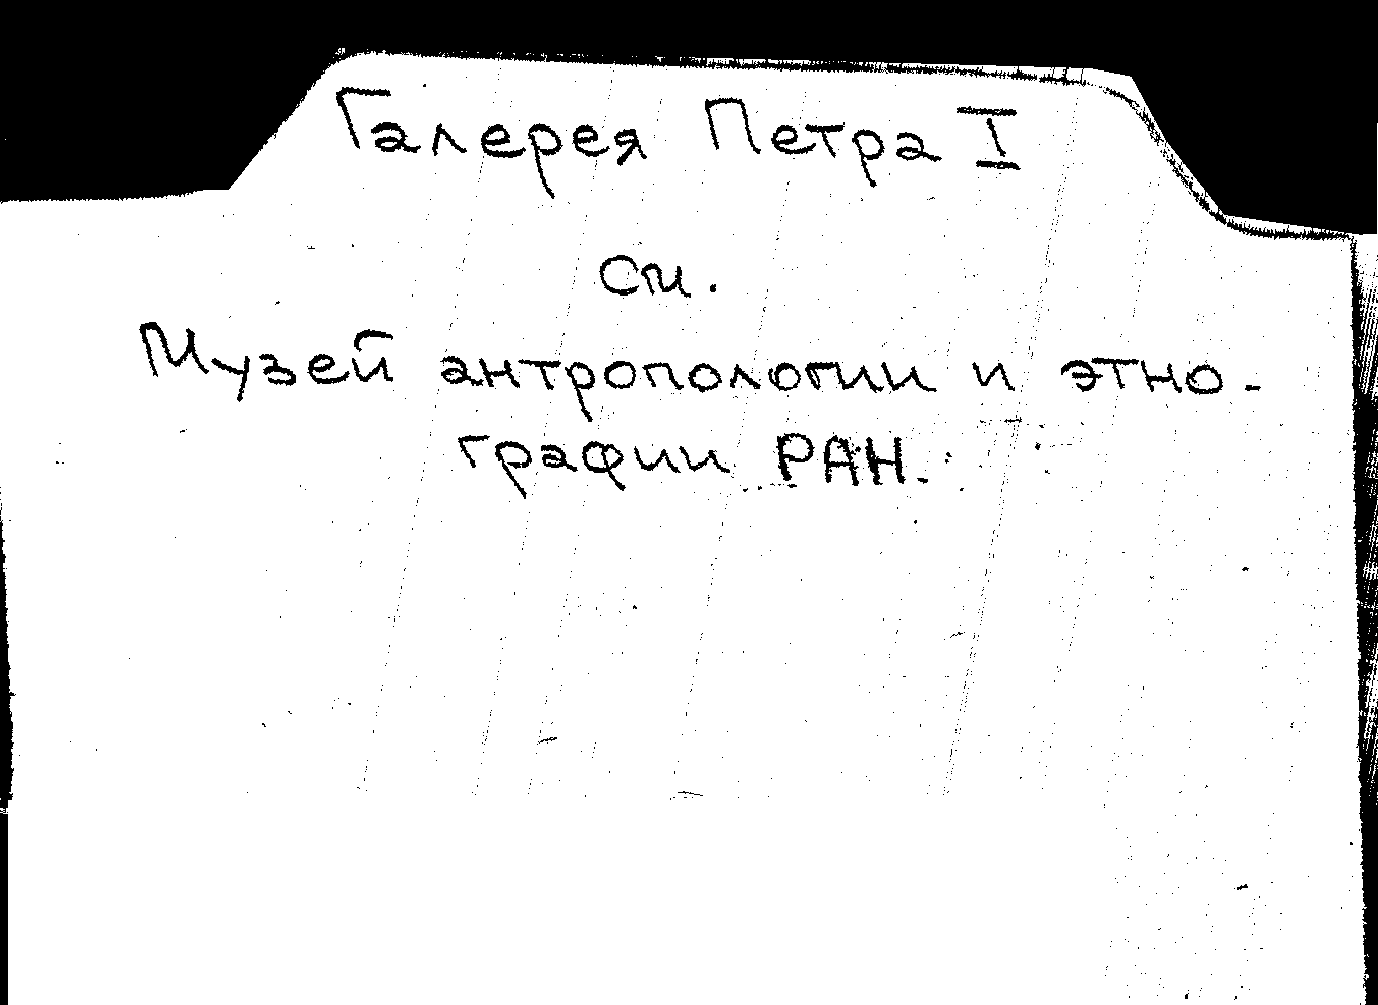 Галерея Петра I
см.
Музей антропологии и этно-
графии РАН.